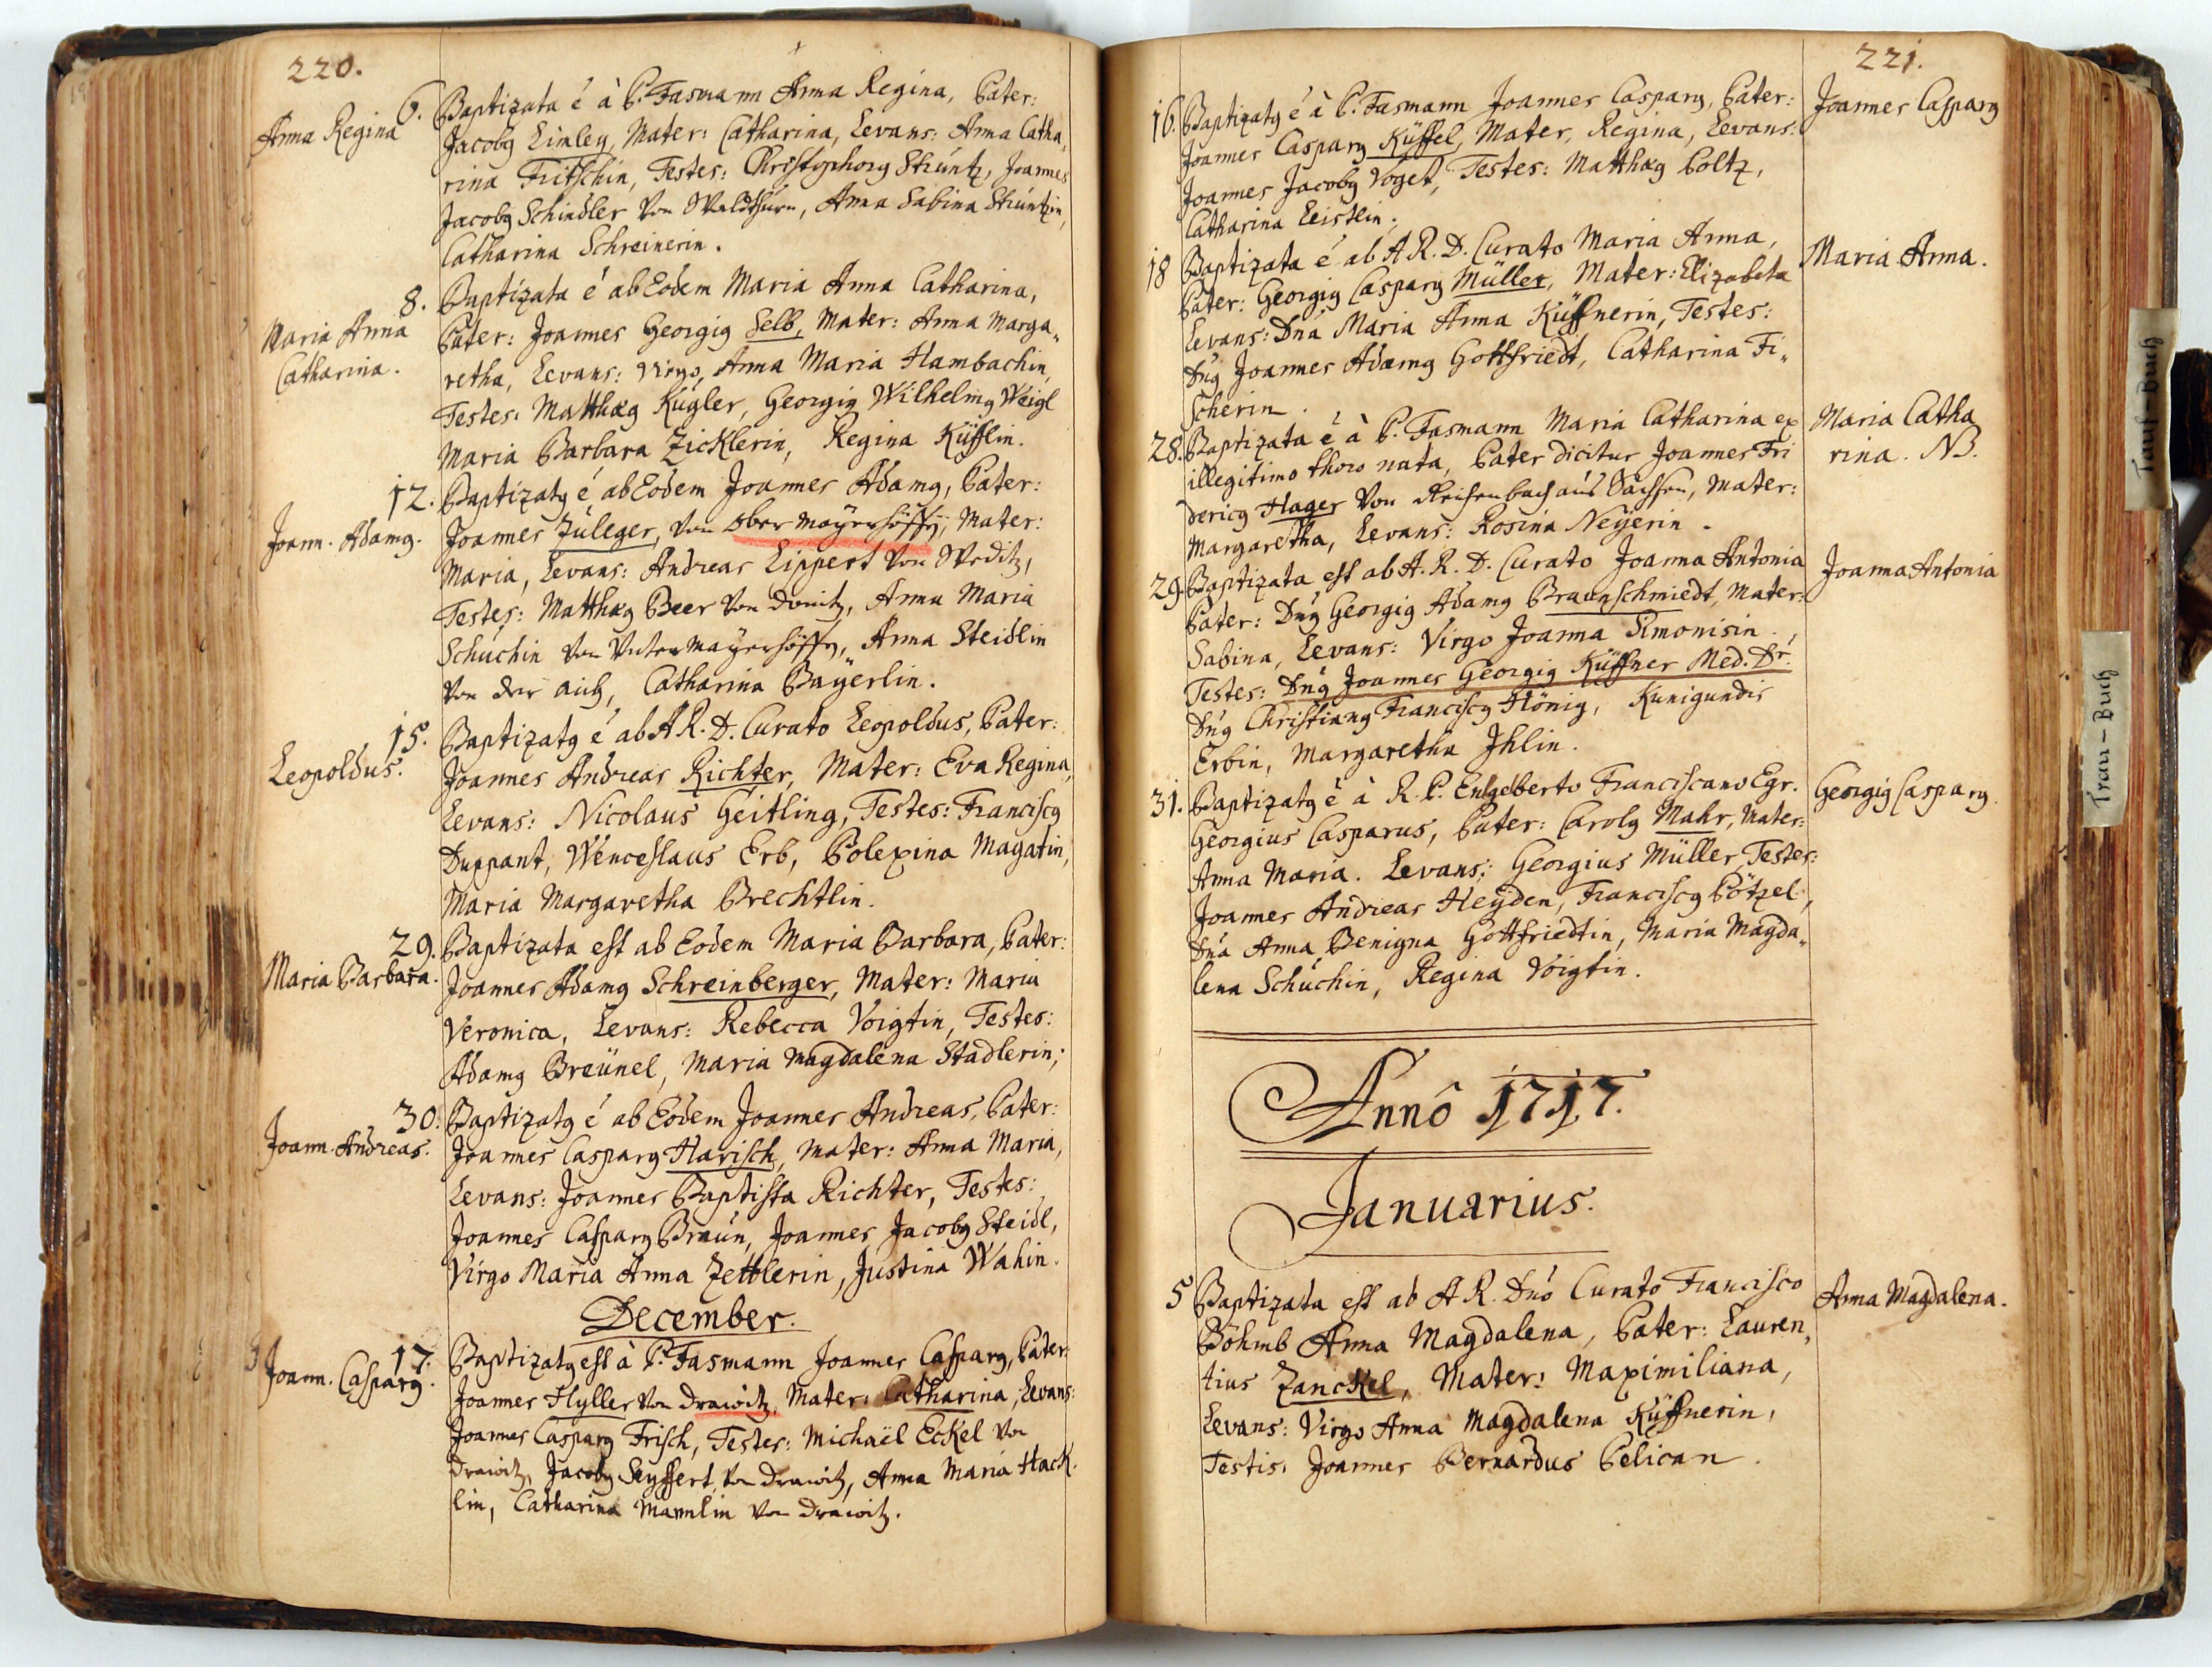 220.
Anna Regina
6. Baptizata é à P. Fasmann Anna Regina, Pater:
Jacobg Limley, Mater: Catharina, Levans: Anna Catha,,
rina Fritschin, Testes: Christophorg Strúntz, Joannes
Jacobg Schindler von Waldthurn, Anna Sabina Strúntzin,
Catharina Schreinerin.
Maria Anna
Catharina.
8. Baptizata é ab Eodem Maria Anna Catharina,
Pater: Joannes Georgig Selb, Mater: Anna Marga,,
retha, Levans: Virgo, Anna Maria Hambachin,
Testes: Matthæg Kugler, Georgig Wilhelmg Weigl
Maria Barbara Zicklerin, Regina Küfflin.
Joann. Adamg.
12. Baptizatg é ab Eodem Joannes Adamg, Pater:
Joannes Zuleger, von Ober Mayerhöffg, Mater:
Maria, Levans: Andreas Lippert von Weditz,
Testes: Matthæg Beer von Donitz, Anna Maria
Schúchin von Unter Mayerhöffg, Anna Steidlin
von der aich, Catharina Bayerlin.
Leopoldus.
15. Baptizatg é ab A R. D. Curato Leopoldus, Pater:
Joannes Andreas Richter, Mater: Eva Regina,
Levans: Nicolaus Geitling, Testes: Franciscg
Duppant, Wenceslaus Erb, Polexina Magatin,
Maria Margaretha Brechtlin.
Maria Barbara.
29. Baptizata est ab Eodem Maria Barbara, Pater:
Joannes Adamg Schreinberger, Mater: Maria
Veronica, Levans: Rebecca Voigtin, Testes:
Adamg Breúnel, Maria Magdalena Stadlerin;
Joann. Andreas.
30. Baptizatg é ab Eodem Joannes Andreas, Pater:
Joannes Casparg Harisch, Mater: Anna Maria,
Levans: Joannes Baptista Richter, Testes:
Joannes Casparg Braún, Joannes Jacobg Steidl,
Virgo Maria Anna Zettlerin, Justina Wahin.
December.
Joann. Casparg.
17. Baptizatg est à P. Fasmann Joannes Casparg, Pater:
Joannes Hyller von Drawitz, Mater: Catharina, Levans:
Joannes Casparg Frisch, Testes: Michaël Eckel von
Drawitz, Jacobg Seyffert von Drawitz, Anna Maria Hack-
lin, Catharina Mannlin von Drawitz.
221.
16. Baptizatg é à P. Fasmann Joannes Casparg, Pater:
Joannes Casparg
Joannes Casparg Küffel, Mater, Regina, Levans:
Joannes Jacobg Voget, Testes: Matthæg Poltz,
Catharina Leistlin.
18 Baptizata é ab A R. D. Curato Maria Anna,
Maria Anna.
Pater: Georgig Casparg Müller, Mater: Elizabeta
Levans: Dná Maria Anna Küffnerin, Testes:
Dng Joannes Adamg Gottfriedt, Catharina Fi,,
scherin.
28. Baptizata é à P. Fasmann Maria Catharina ex
Maria Catha
rina. NB.
illegitimo thoro nata, Pater dicitur Joannes Fri
dericg Hager von Reichenbach aus Sachsen, Mater:
Margaretha, Levans: Rosina Neyerin.
29. Baptizata est ab A. R. D. Curato Joanna Antonia
Joanna Antonia
Pater: Dng Georgig Adamg Braunschmiedt, Mater:
Sabina, Levans: Virgo Joanna Simonisin.,
Testes: Dng Joannes Georgig Küffner Med. Dr.
Dng Christiang Franciscg Hönig, Kunigundis
Erbin, Margaretha Ihlin.
31. Baptizatg é à R. P. Engelberto Franciscano Egr.
Georgig Casparg.
Georgius Casparus, Pater: Carolg Mahr, Mater:
Anna Maria. Levans: Georgius Müller, Testes:
Joannes Andreas Heyden, Franciscg Pötzel,
Dná Anna Benigna Gottfriedtin, Maria Magda,,
lena Schúchin, Regina Voigtin.
Annô 1717.
Januarius.
5 Baptizata est ab A R. Dnó Curato Francisco
Anna Magdalena.
Böhmb Anna Magdalena, Pater: Lauren,,
tius Zanckel, Mater: Maximiliana,
Levans: Virgo Anna Magdalena Küffnerin,
Testis: Joannes Bernardus Pelican.
Tauf-Buch
Trau-Buch